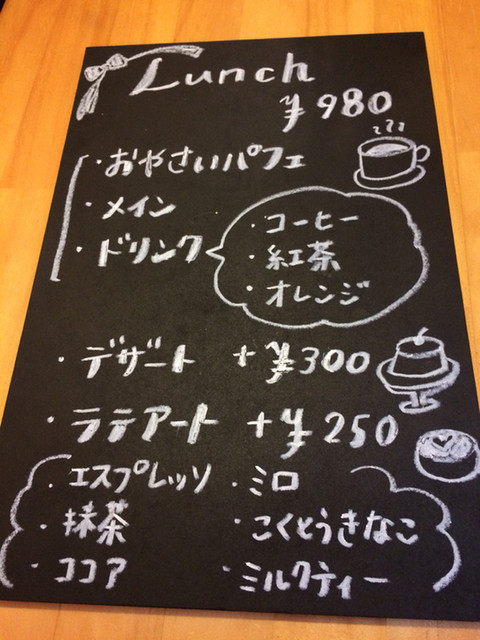 Lunch
¥980
・おやさいパフェ
・メイン
・ドリンク
・コーヒー
・紅茶
・オレンジ
・デザート +¥300
・ラテアート +¥250
・エスプレッソ ・ミロ
・抹茶 ・こくとうきなこ
・ココア ・ミルクティー